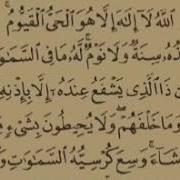 اللَّهُ لَا إِلَٰهَ إِلَّا هُوَ الْحَيُّ الْقَيُّومُ ۚ
ذُهُ سِنَةٌ وَلَا نَوْمٌ ۚ لَّهُ مَا فِي السَّمَٰوَ
ن ذَا الَّذِي يَشْفَعُ عِندَهُ إِلَّا بِإِذْنِهِ
وَمَا خَلْفَهُمْ ۖ وَلَا يُحِيطُونَ بِشَيْءٍ
شَاءَ ۚ وَسِعَ كُرْسِيُّهُ السَّمَٰوَٰتِ وَ